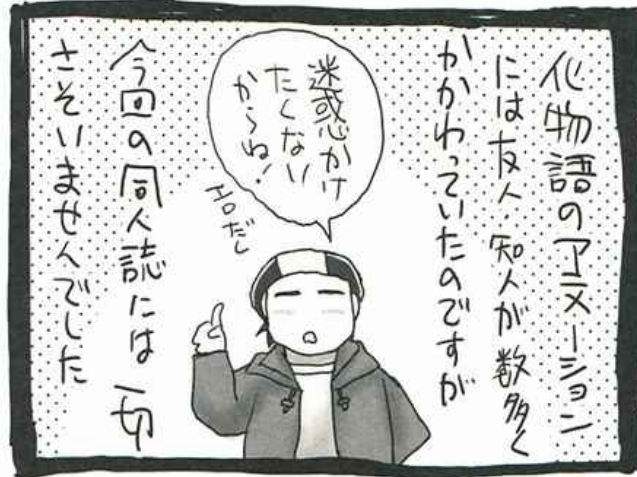 化物語のアニメーション
には友人・知人が数多く
かかわっていたのですが
迷惑かけ
たくない
からね!
エロだし
今回の同人誌には一切
さそいませんでした